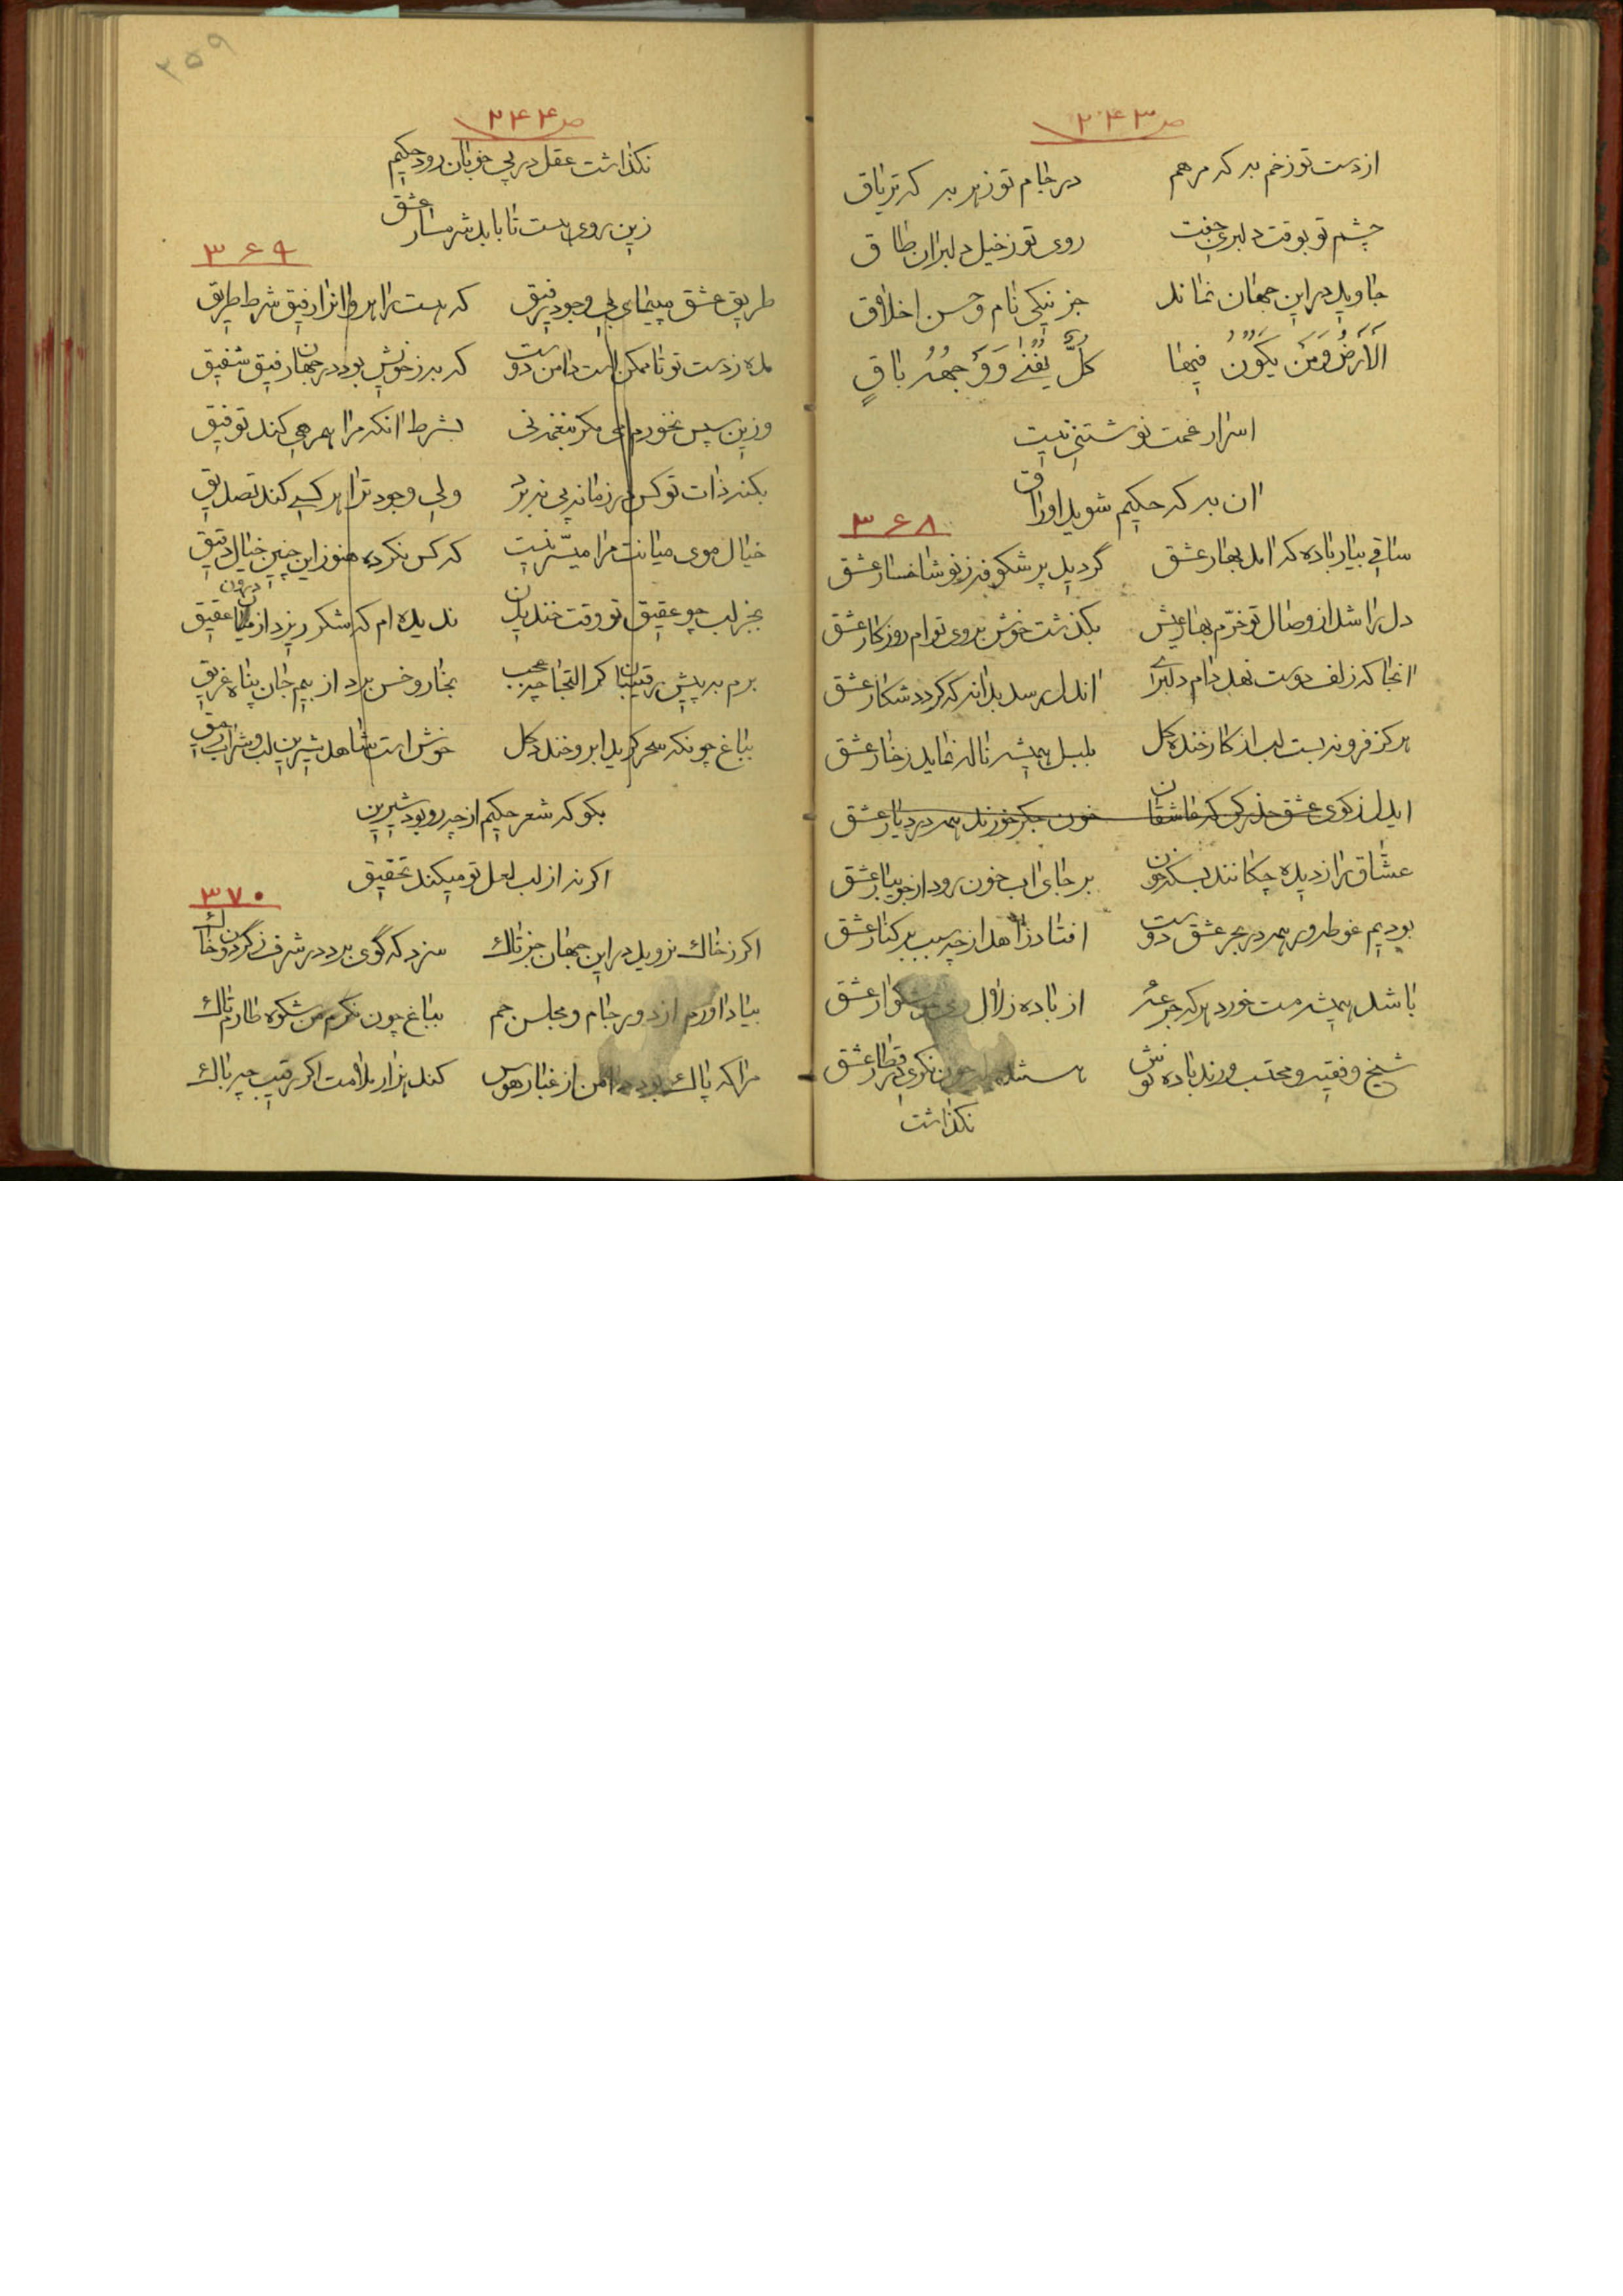 ص ۲۴۳
از دست تو زخم به که مرهم در جام تو زهر به که تریاق
چشم تو بوقت دلبری جفت روی تو ز خیل دلبران طاق
جاوید در این جهان نماند جز نیکی نام و حسن اخلاق
الارض و من یکون فیها کل یفنی و وجهه باق
اسرار غمت نوشتنی نیست
ان به که حکیم شوید اوراق
۳۶۸
ساقی بیار باده که امد بهار عشق گردید پر شکوفه ز نو شاخسار عشق
دل را شد از وصال تو خرم بهار عیش بگذشت خوش بروی توام روزگار عشق
انجا که زلف دوست نهد دام دلبری اندل رسد بدانه که گردد شکار عشق
هرگز فرو نبست لب از کار خنده گل بلبل همیشه ناله نماید ز خار عشق
ایدل ز کوی عشق حذر کن که عاشقان خون جگر خورند همه در دیار عشق
عشاق را ز دیده چکانند بسکه خون بر جای اب خون رود از جویبار عشق
بودیم غوطه ور همه در بحر عشق دوست افتاد زاهد از چه سبب بر کنار عشق
باشد همیشه مست خورد هر که جرعه از باده زلال عشق
شیخ و فقیه و محتسب و رند باده نوش چون نگری در قطار عشق
نگذاشت
۲۵۹
ص ۲۴۴
نگذاشت عقل در پی خوبان رود حکیم
زین روی هست تا بابد شرمسار عشق
۳۶۹
طریق عشق مپیمای بی وجود رفیق که هست راهرو انرا رفیق شرط طریق
مده ز دست تو تا ممکن است دامن دوست که به ز خویش بود در جهان رفیق شفیق
وزین سپس نخورم می مگر بنغمه نی بشرط انکه مرا همرهی کند توفیق
بکنه ذات تو کس در زمانه پی نبرد ولی وجود ترا هر کسی کند تصدیق
خیال موی میانت مرا میسر نیست که کس نکرده هنوز این چنین خیال دقیق
بجز لب چو عقیق تو وقت خندیدن ندیده ام که شکر ریزد از درون عقیق
برم به پیش رقیبان گر التجا چه عجب بخار و خس برد از بیم جان پناه غریق
بباغ چونکه سحر گرید ابر و خندد گل خوش است شاهد شیرین لب و شراب رحیق
بگو که شعر حکیم از چه رو بود شیرین
اگر نه از لب لعل تو میکند تحقیق
۳۷۰
اگر ز خاك نروید در این جهان جز تاك سزد که گوی برد در شرف ز گردون خاك
بیاد اورم از دور جام و مجلس جم بباغ چون نگرم من شکوه طارم تاك
مرا که پاك بود دامن از غبار هوس کند هزار ملامت اگر رقیب چه باك